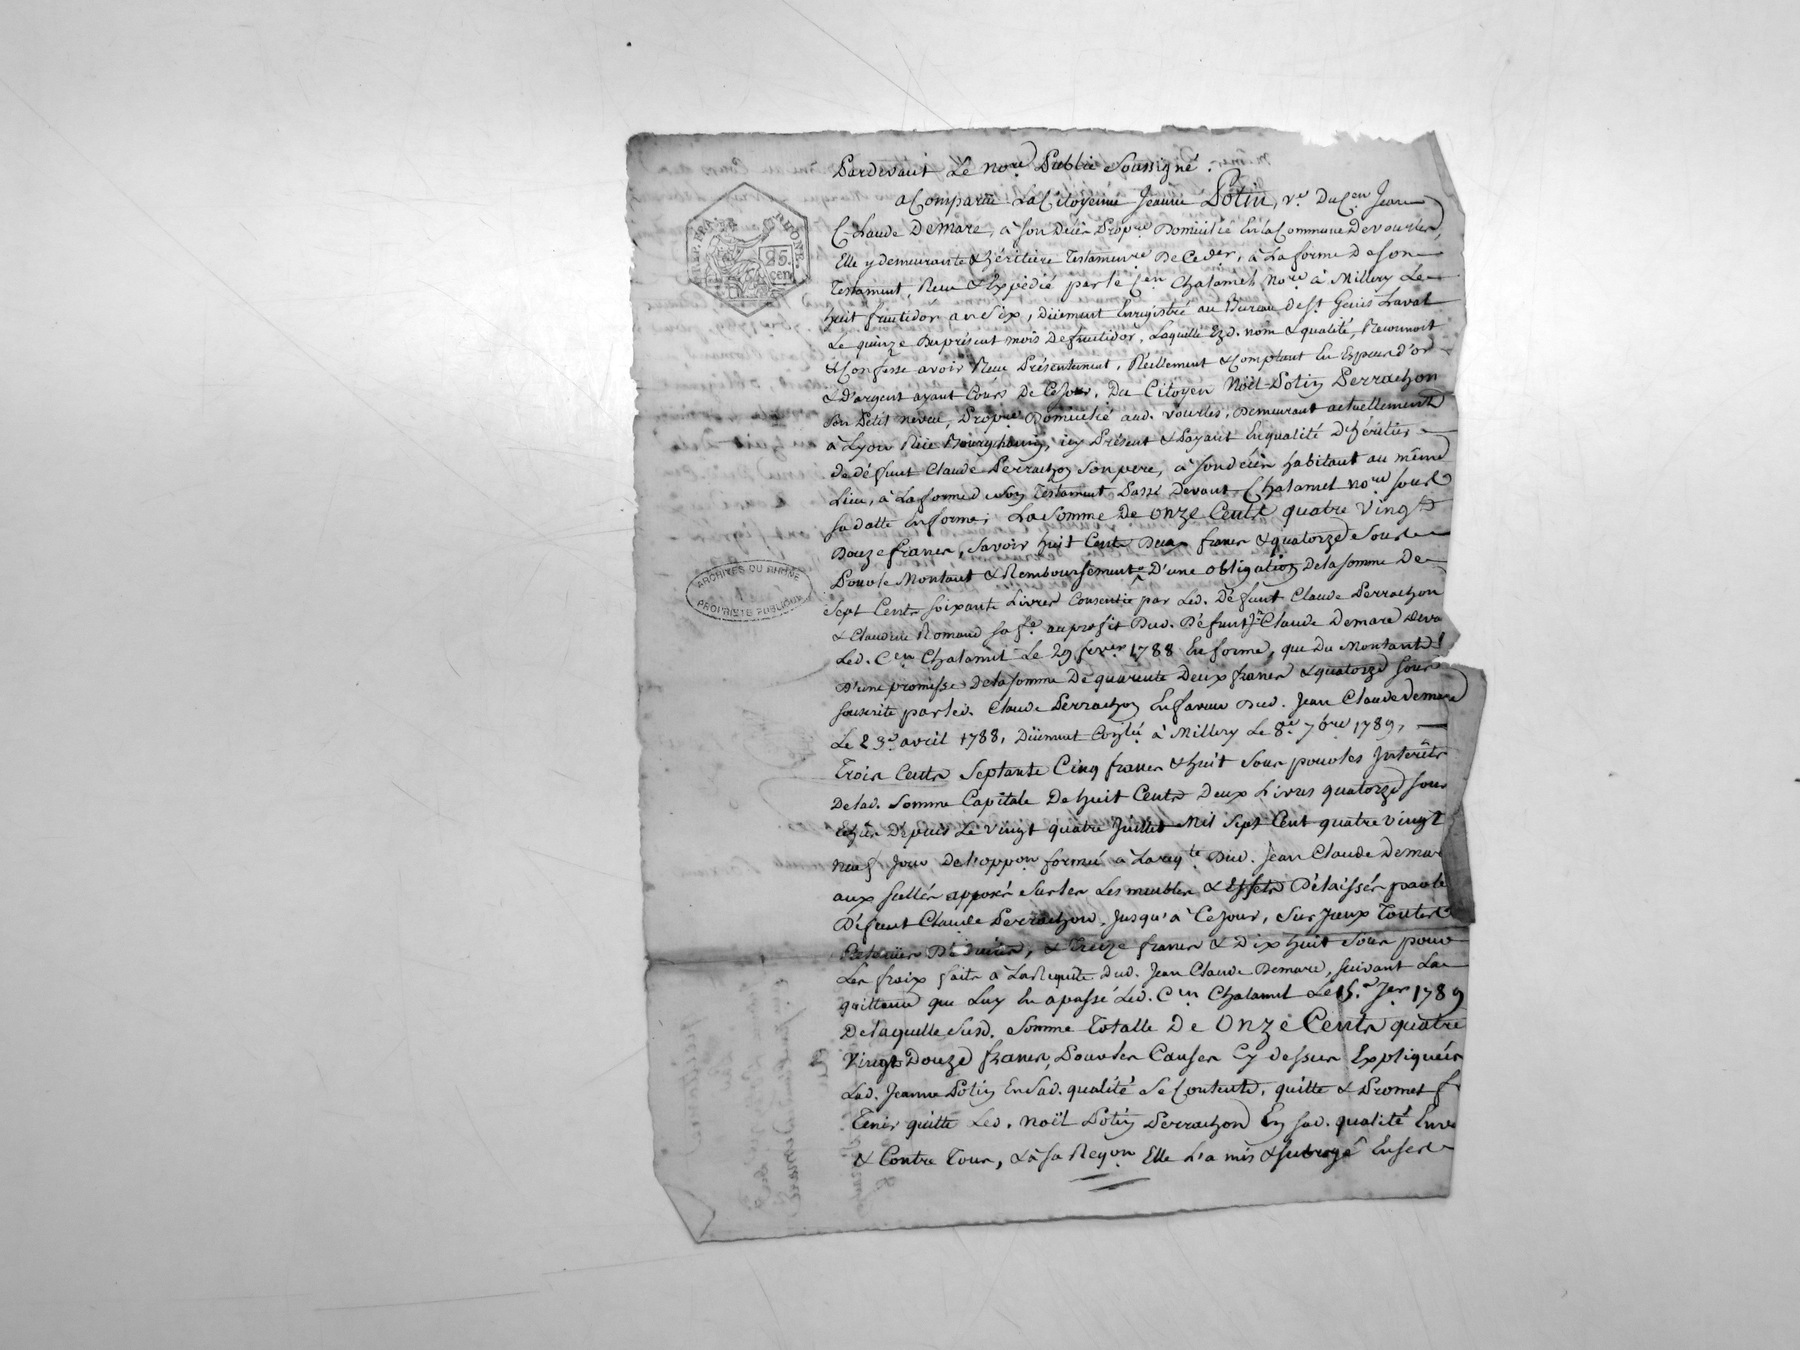 Pardevant Le no.re Public Soussigné.
a Comparüe La Citoyenne Jeanne Potin, v.e Du C.en Jean
Claude Demare, à Son Décès Prop.re Domicilié En la Commune De vourles,
Elle y demeurante & héritiere Testament.re De Ce d.er, à La forme De Son
Testament, Reçu & Expédié par le C.en Chalamel No.re à Millery Le
huit fructidor an Six, Düement Enregistré au Bureau de St. Genis Laval
Le quinze Du présent mois De fructidor, Laquelle Ezd. nom & qualité, Reconnoit
& Confesse avoir Reçu Présentement, Réellement & Comptant En Especes d'or
& D'argent ayant Cours De Ce Jour, Du Citoyen Noël Potin Perrachon
Son Petit neveu, Prop.re Domicilié aud. vourles, Demeurant actuellement
à Lyon Rüe Bourgchanin, icy Présent & Payant En qualité D'héritier
de défunt Claude Perrachon Son pere, à Son décès habitant au même
Lieu, à La forme de Son Testament Passé Devant Chalamel no.re Sous
Sa datte En forme; La Somme De Onze Cents quatre Vingt
Douze francs, Savoir huit Cents Deux francs & quatorze Sous
Pour le Montant & Remboursement D'une obligation De la Somme De
Sept Cents Soixante Livres Consentie par Led. Défunt Claude Perrachon
& Claudine Romand Sa f.e au profit Dud. Défunt J.n Claude Demare Deva
Led. C.en Chalamel Le 29 fev.er 1788 En forme, que Du Montant
D'une promesse De la Somme De quarente Deux francs & quatorze Sous
Souscrite par led. Claude Perrachon En faveur Dud. Jean Claude Demare
Le 23.e avril 1788, Düement Con.lé à Millery Le 8.e 7bre 1789,
Trois Cents Septante Cinq francs & huit Sous pour les Interêts
De lad. Somme Capitale De huit Cents Deux Livres quatorze Sous
Echus Depuis Le Vingt quatre Juillet Mil Sept Cent quatre Vingt
Neuf Jour De L'oppon formée à La req.te Dud. Jean Claude Demare
aux Scellés apposés Sur les Les meubles & Effets Délaissés par le
Défunt Claude Perrachon, Jusqu'à Ce Jour, Sur Iceux Toutes
Retenües Déduites, & Treize francs & Dix huit Sous pour
Les fraix faits à La Requête Dud. Jean Claude Demare, Suivant La
quittance que Luy En a passé Led. C.en Chalamel Le 15.e 7.er 1789
De laquelle Susd. Somme Totalle De Onze Cents quatre
Vingt Douze francs, Pour les Causes Cy dessus Expliquées
Lad. Jeanne Potin En Sad. qualité Se Contente, quitte & Promet f
Tenir quitte Led. Noël Potin Perrachon En Sad. qualité Enve
& Contre Tous, & à Sa Reqon Elle L'a mis & Subrogé En Ses
25.
cen
ARCHIVES DU RHÔNE
PROPRIÉTÉ PUBLIQUE